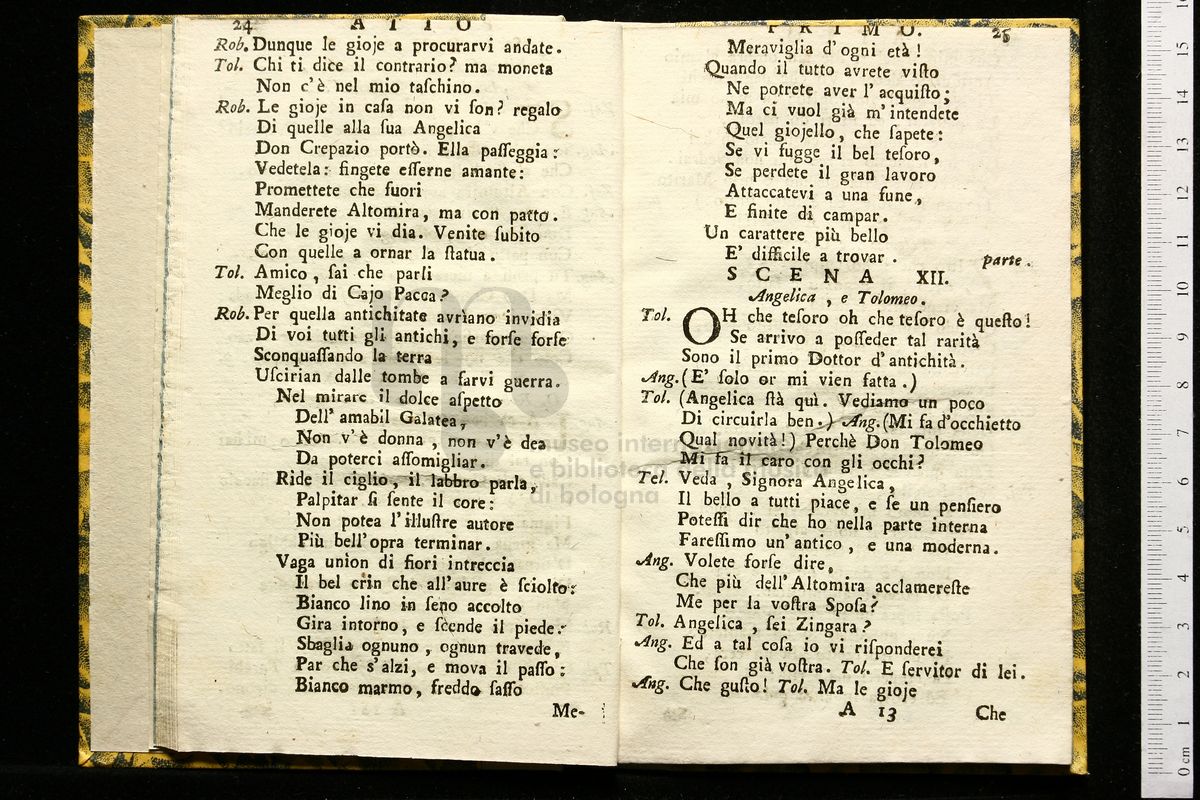 24 ATTO
Rob. Dunque le gioje a procurarvi andate.
Tol. Chi ti dice il contrario? ma moneta
Non c'è nel mio taſchino.
Rob. Le gioje in caſa non vi ſon? regalo
Di quelle alla ſua Angelica
Don Crepazio portò. Ella paſſeggia:
Vedetela: fingete eſſerne amante:
Promettete che fuori
Manderete Altomira, ma con patto.
Che le gioje vi dia. Venite ſubito
Con quelle a ornar la ſtatua.
Tol. Amico, ſai che parli
Meglio di Cajo Pacca?
Rob. Per quella antichitate avrìano invidia
Di voi tutti gli antichi, e forſe forſe
Sconquaſſando la terra
Uſcirian dalle tombe a farvi guerra.
Nel mirare il dolce aſpetto
Dell' amabil Galatea,
Non v'è donna, non v'è dea
Da poterci aſſomigliar.
Ride il ciglio, il labbro parla,
Palpitar ſi ſente il core:
Non potea l'illuſtre autore
Più bell'opra terminar.
Vaga union di fiori intreccia
Il bel crin che all'aure è ſciolto:
Bianco lino in ſeno accolto
Gira intorno, e ſcende il piede:
Sbaglia ognuno, ognun travede,
Par che s'alzi, e mova il paſſo:
Bianco marmo, freddo ſaſſo
Me-
PRIMO. 25
Meraviglia d'ogni età!
Quando il tutto avrete viſto
Ne potrete aver l'acquiſto;
Ma ci vuol già m'intendete
Quel giojello, che ſapete:
Se vi fugge il bel teſoro,
Se perdete il gran lavoro
Attaccatevi a una fune,
E finite di campar.
Un carattere più bello
E' difficile a trovar. parte.
SCENA XII.
Angelica, e Tolomeo.
Tol. OH che teſoro oh che teſoro è queſto!
Se arrivo a poſſeder tal rarità
Sono il primo Dottor d'antichità.
Ang. (E' ſolo or mi vien fatta.)
Tol. (Angelica ſtà quì. Vediamo un poco
Di circuirla ben.) Ang. (Mi fa d'occhietto
Qual novità!) Perchè Don Tolomeo
Mi fa il caro con gli occhi?
Tel. Veda, Signora Angelica,
Il bello a tutti piace, e ſe un penſiero
Poteſſi dir che ho nella parte interna
Fareſſimo un'antico, e una moderna.
Ang. Volete forſe dire,
Che più dell'Altomira acclamereſte
Me per la voſtra Spoſa?
Tol. Angelica, ſei Zingara?
Ang. Ed a tal coſa io vi riſponderei
Che ſon già voſtra. Tol. E ſervitor di lei.
Ang. Che guſto! Tol. Ma le gioje
A 13 Che
museo internazionale
e biblioteca della musica
di bologna
0 cm 1 2 3 4 5 6 7 8 9 10 11 12 13 14 15